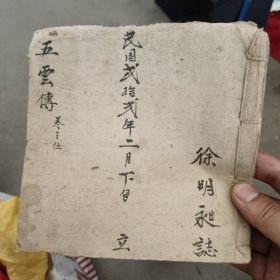 五雲傳
卷之伍
民國貳拾貳年二月下旬 立
徐明昶誌